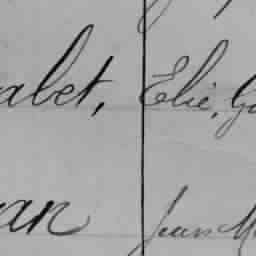 abet, Elie, G
an Jean M